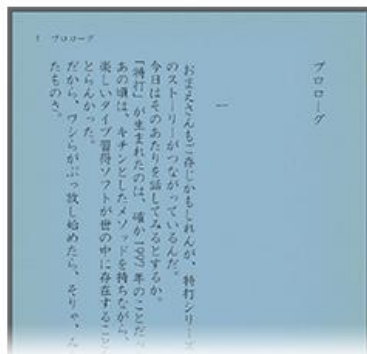 プロローグ
一
おまえさんもご存じかもしれんが、特打シリーズ
のストーリーがつながっているんだ。
今日はそのあたりを話してみるとするか。
『特打』が生まれたのは、確か1997年のことだ
あの頃は、キチンとしたメソッドを持ちながら、
楽しいタイプ習得ソフトが世の中に存在すること
とらんかった。
だから、ワシらがぶっ放し始めたら、そりゃ、
たものさ。
プロローグ